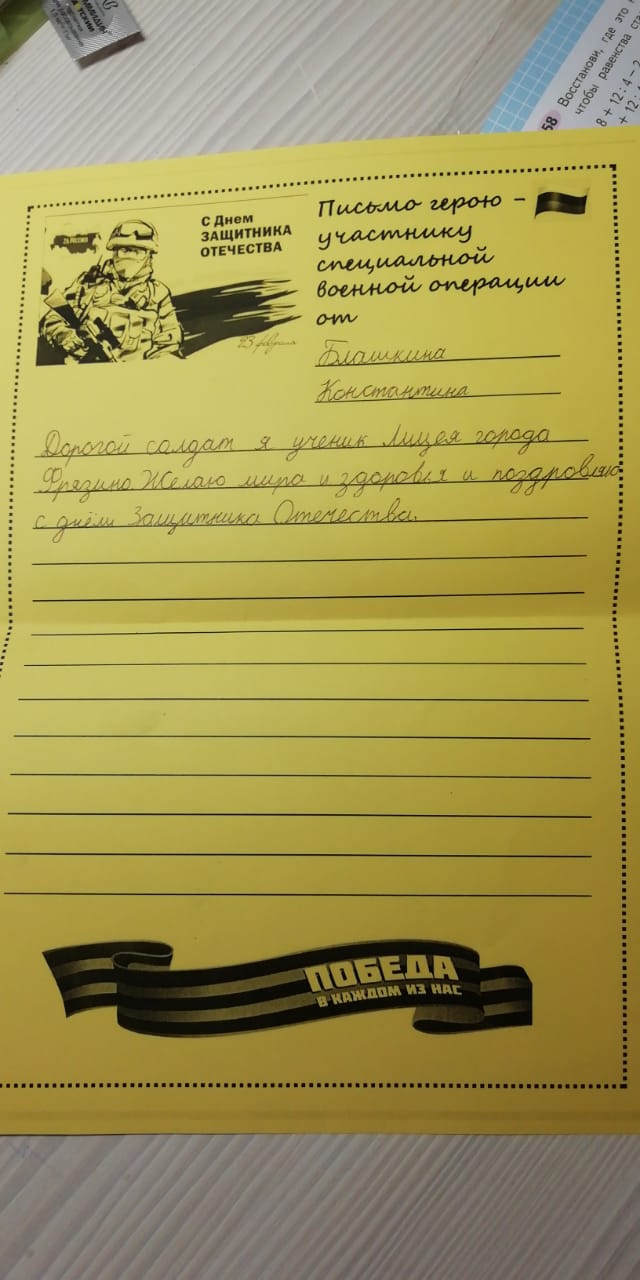 58 Восстанови, где это
чтобы равенства ста
8 + 12 : 4 - 2
+ 12 : 4
ZA РОССИЮ
С Днем
ЗАЩИТНИКА
ОТЕЧЕСТВА
23 февраля
Письмо герою –
участнику
специальной
военной операции
от
Блашкина
Константина
Дорогой солдат я ученик Лицея города
Фрязино. Желаю мира и здоровья и поздровляю
с днём Защитника Отечества.
ПОБЕДА
В КАЖДОМ ИЗ НАС